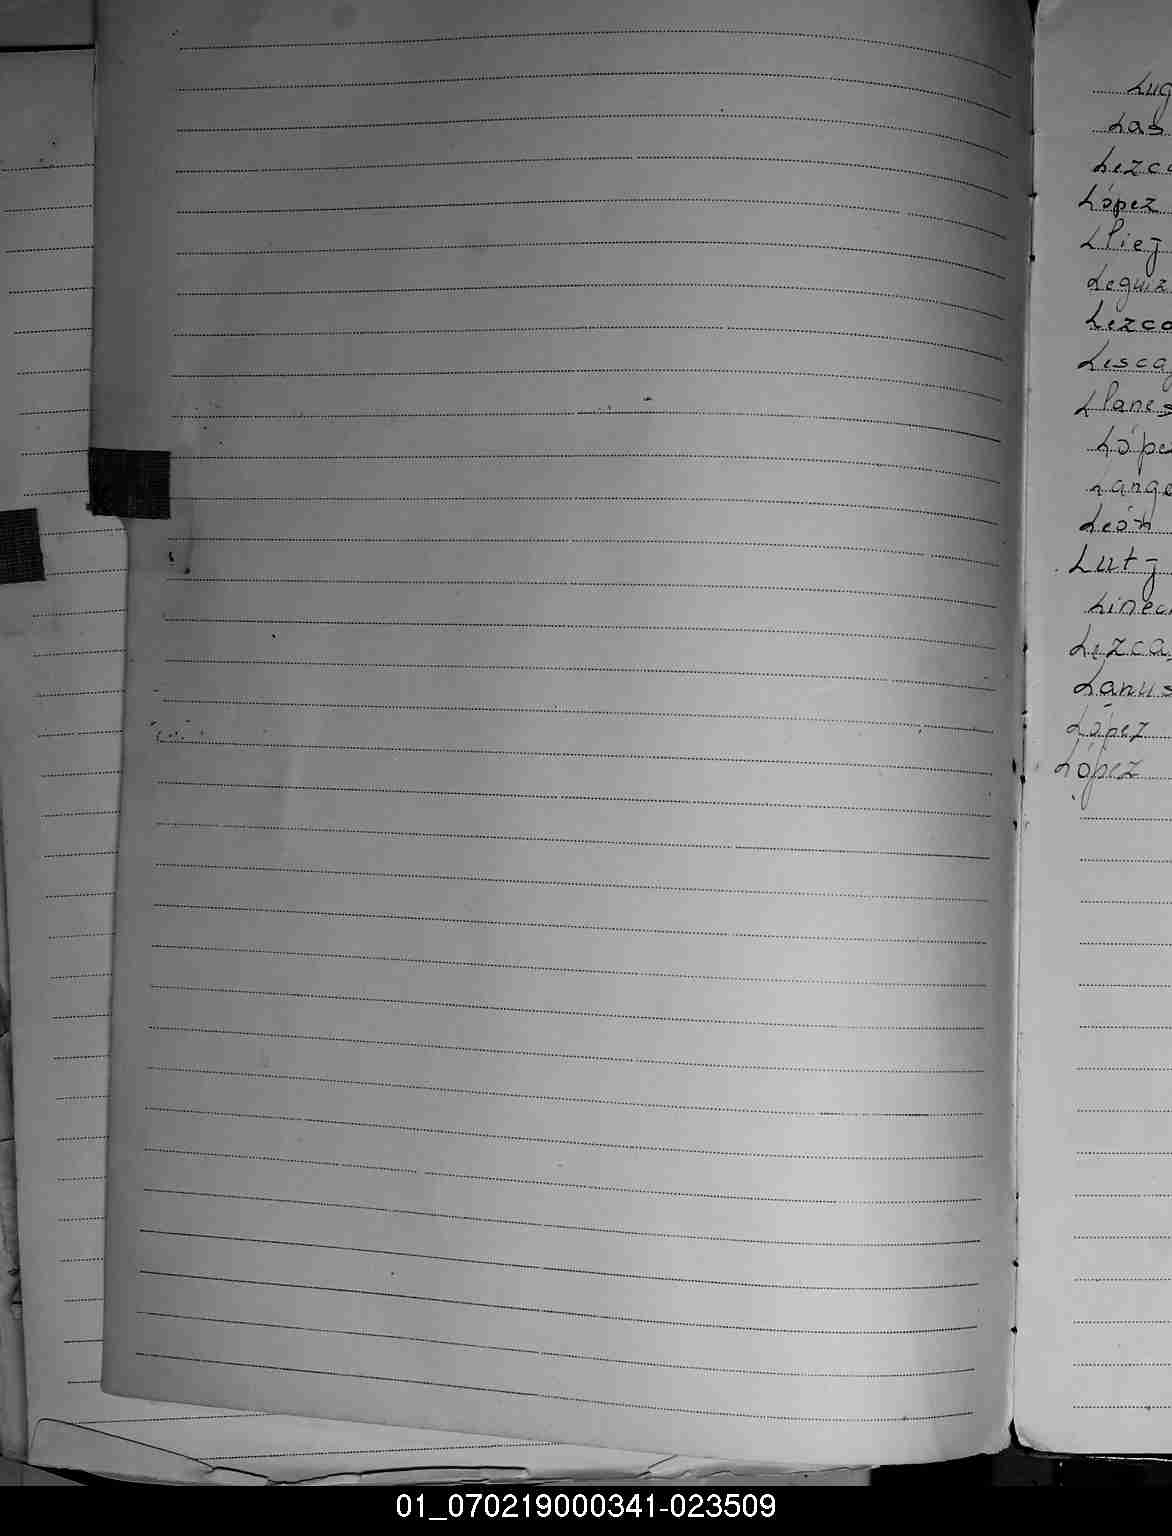 Lug
Las
Lezca
López
Lliej
Leguiz
Lezca
Lescaj
Llanes
Lópe
Lange
León
Lutj
Linea
Lezca
Lanus
López
López
01_070219000341-023509